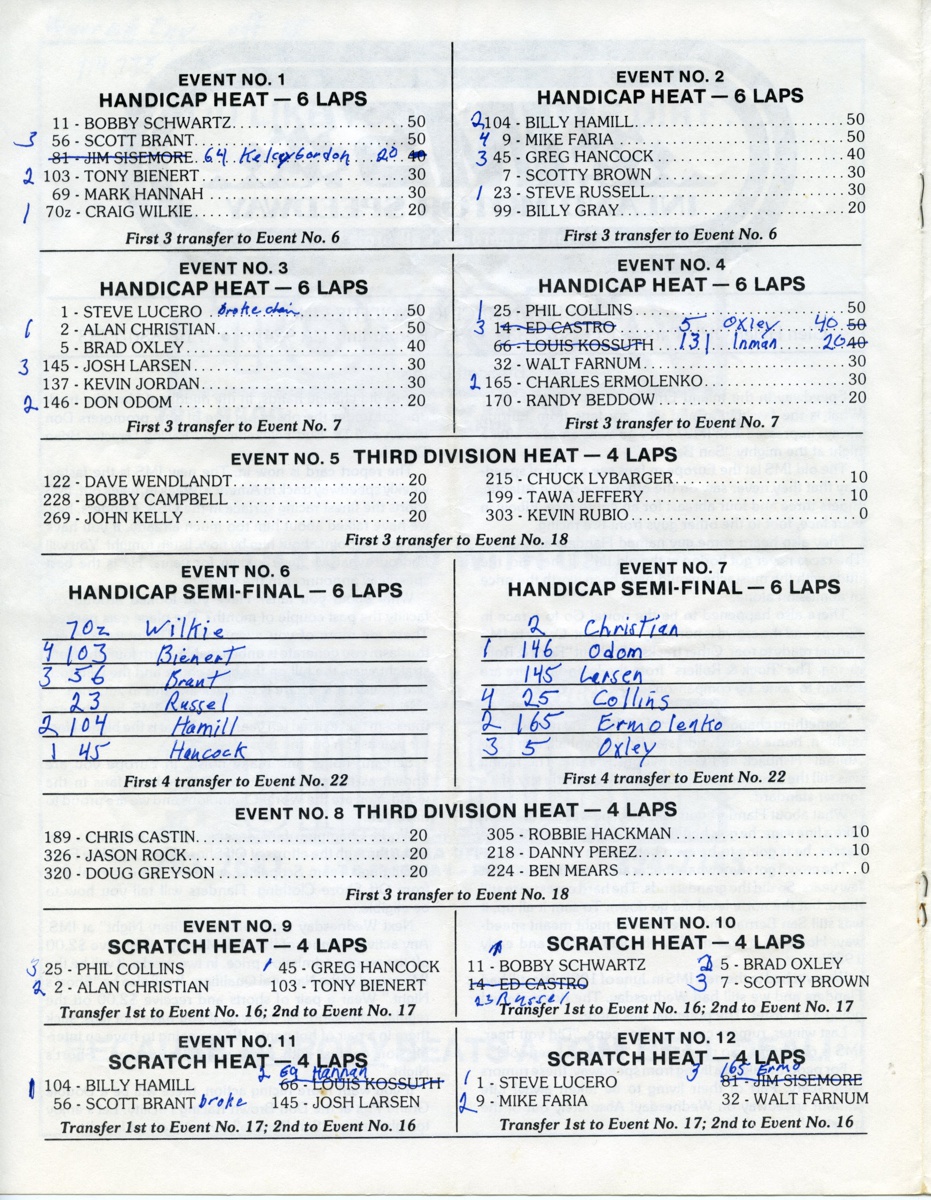 EVENT NO. 1
HANDICAP HEAT — 6 LAPS
11 - BOBBY SCHWARTZ 50
3 56 - SCOTT BRANT 50
81 - JIM SISEMORE 64 Kelsey Gordon 20 40
2 103 - TONY BIENERT 30
69 - MARK HANNAH 30
1 70z - CRAIG WILKIE 20
First 3 transfer to Event No. 6
EVENT NO. 2
HANDICAP HEAT — 6 LAPS
2 104 - BILLY HAMILL 50
4 9 - MIKE FARIA 50
3 45 - GREG HANCOCK 40
7 - SCOTTY BROWN 30
1 23 - STEVE RUSSELL 30
99 - BILLY GRAY 20
First 3 transfer to Event No. 6
EVENT NO. 3
HANDICAP HEAT — 6 LAPS
1 - STEVE LUCERO broke chain 50
1 2 - ALAN CHRISTIAN 50
5 - BRAD OXLEY 40
3 145 - JOSH LARSEN 30
137 - KEVIN JORDAN 30
2 146 - DON ODOM 20
First 3 transfer to Event No. 7
EVENT NO. 4
HANDICAP HEAT — 6 LAPS
1 25 - PHIL COLLINS 50
3 14 - ED CASTRO 5 Oxley 40 50
66 - LOUIS KOSSUTH 131 Inman 20 40
32 - WALT FARNUM 30
2 165 - CHARLES ERMOLENKO 30
170 - RANDY BEDDOW 20
First 3 transfer to Event No. 7
EVENT NO. 5 THIRD DIVISION HEAT — 4 LAPS
122 - DAVE WENDLANDT 20
228 - BOBBY CAMPBELL 20
269 - JOHN KELLY 20
215 - CHUCK LYBARGER 10
199 - TAWA JEFFERY 10
303 - KEVIN RUBIO 0
First 3 transfer to Event No. 18
EVENT NO. 6
HANDICAP SEMI-FINAL — 6 LAPS
70z Wilkie
4 103 Bienert
3 56 Brant
23 Russel
2 104 Hamill
1 45 Hancock
First 4 transfer to Event No. 22
EVENT NO. 7
HANDICAP SEMI-FINAL — 6 LAPS
2 Christian
1 146 Odom
145 Larsen
4 25 Collins
2 165 Ermolenko
3 5 Oxley
First 4 transfer to Event No. 22
EVENT NO. 8 THIRD DIVISION HEAT — 4 LAPS
189 - CHRIS CASTIN 20
326 - JASON ROCK 20
320 - DOUG GREYSON 20
305 - ROBBIE HACKMAN 10
218 - DANNY PEREZ 10
224 - BEN MEARS 0
First 3 transfer to Event No. 18
EVENT NO. 9
SCRATCH HEAT — 4 LAPS
3 25 - PHIL COLLINS 1 45 - GREG HANCOCK
2 2 - ALAN CHRISTIAN 103 - TONY BIENERT
Transfer 1st to Event No. 16; 2nd to Event No. 17
EVENT NO. 10
SCRATCH HEAT — 4 LAPS
11 - BOBBY SCHWARTZ 2 5 - BRAD OXLEY
14 - ED CASTRO 3 7 - SCOTTY BROWN
23 Russel
Transfer 1st to Event No. 16; 2nd to Event No. 17
EVENT NO. 11
SCRATCH HEAT — 4 LAPS
2 69 Hannah
1 104 - BILLY HAMILL 66 - LOUIS KOSSUTH
56 - SCOTT BRANT broke 145 - JOSH LARSEN
Transfer 1st to Event No. 17; 2nd to Event No. 16
EVENT NO. 12
SCRATCH HEAT — 4 LAPS
3 165 Ermo
1 1 - STEVE LUCERO 81 - JIM SISEMORE
2 9 - MIKE FARIA 32 - WALT FARNUM
Transfer 1st to Event No. 17; 2nd to Event No. 16